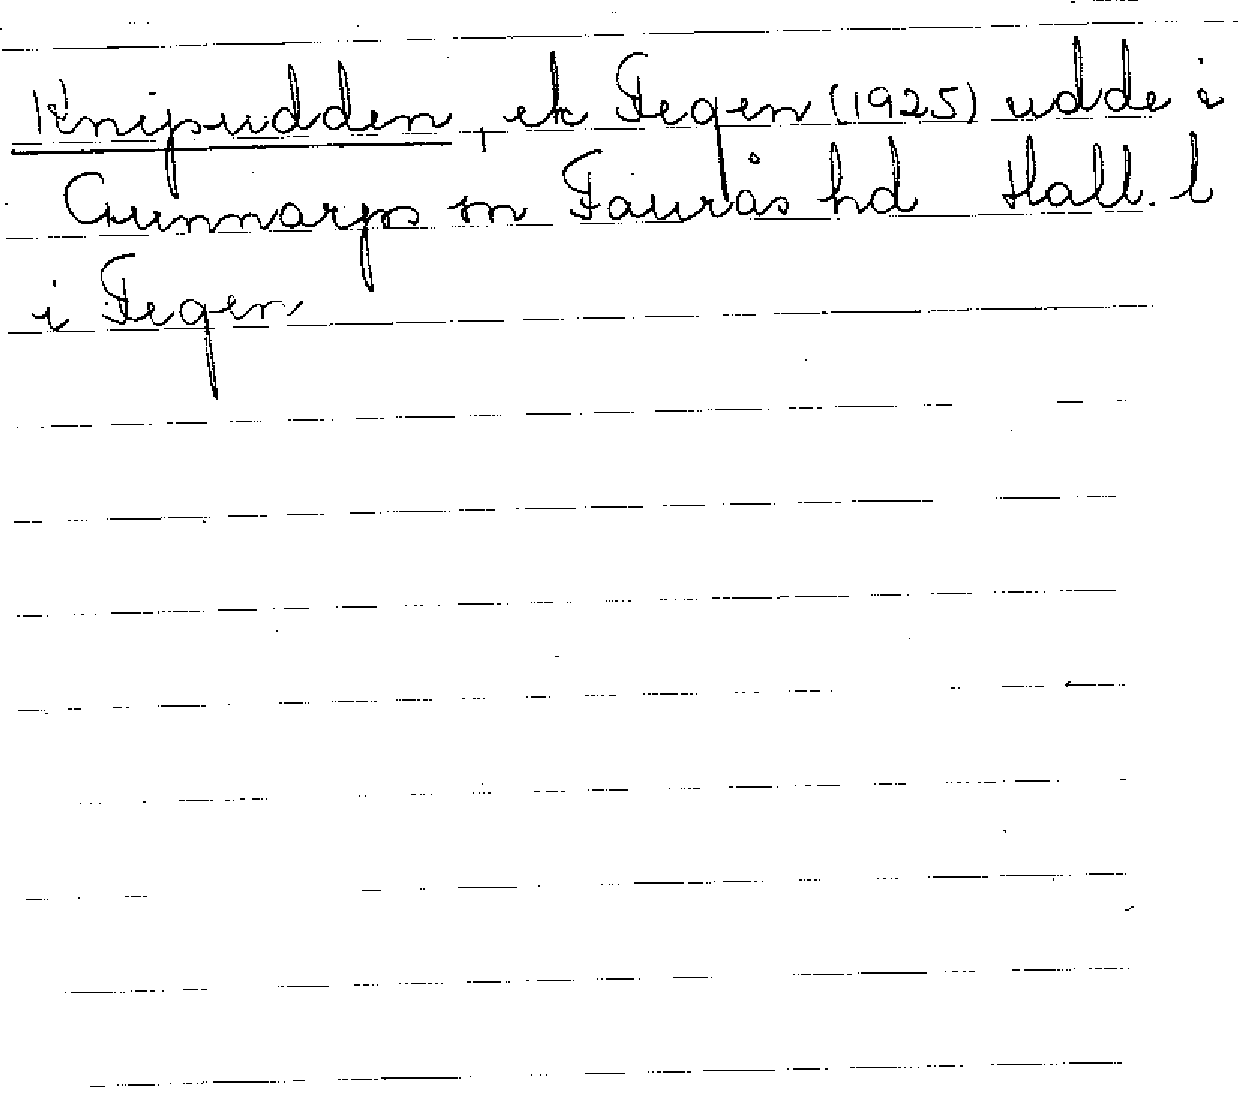 Knipudden, ek Fegen (1925) udde i
Gunnarps sn Faurås hd Hall. l
i Fegen